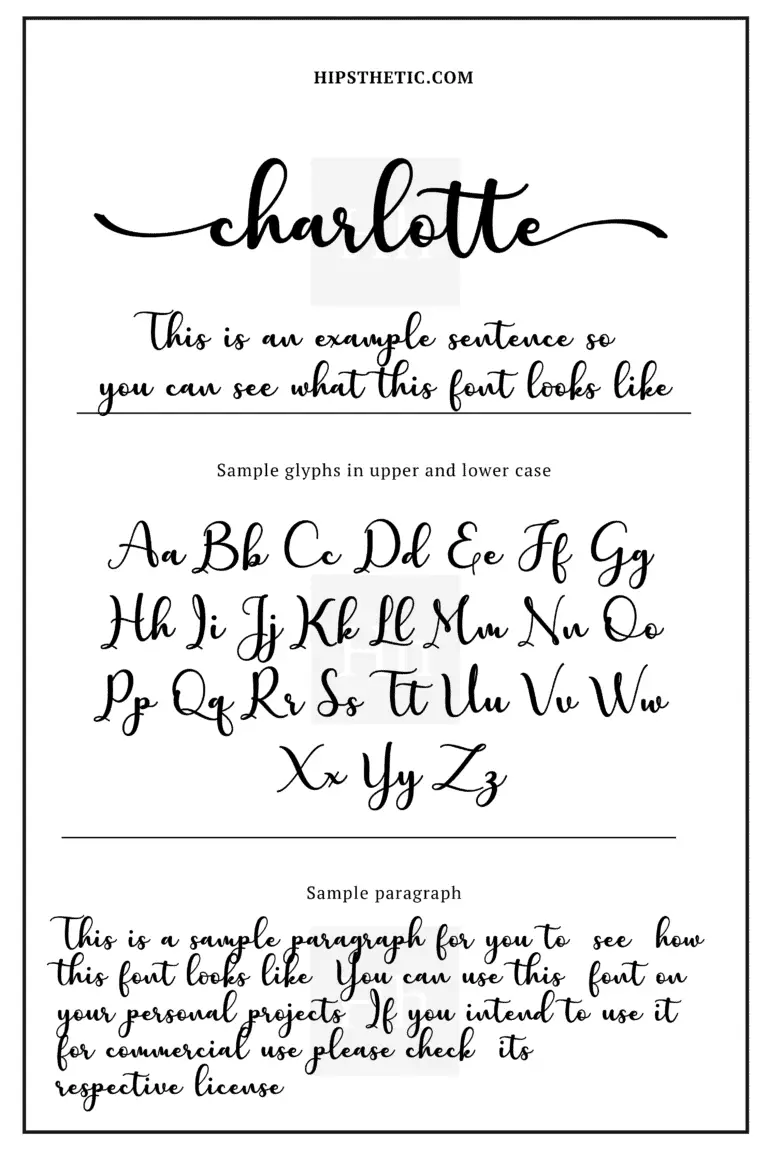 HIPSTHETIC.COM
charlotte
This is an example sentence so
you can see what this font looks like
Sample glyphs in upper and lower case
Aa Bb Cc Dd Ee Ff Gg
Hh Ii Jj Kk Ll Mm Nn Oo
Pp Qq Rr Ss Tt Uu Vv Ww
Xx Yy Zz
Sample paragraph
This is a sample paragraph for you to see how
this font looks like You can use this font on
your personal projects If you intend to use it
for commercial use please check its
respective license